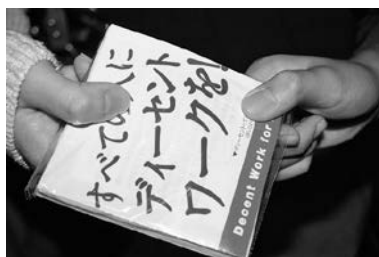 すべての人に
ディーセント
ワークを!
Decent Work for